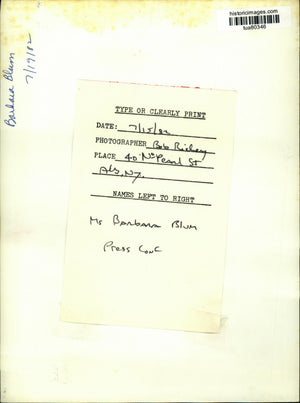 historicimages.com
tua80346
Barbara Blum
7/19/82
TYPE OR CLEARLY PRINT
DATE: 7/15/82
PHOTOGRAPHER Bob Richey
PLACE 40 No Pearl St
Alb, N.Y.
NAMES LEFT TO RIGHT
Ms Barbara Blum
Press Conf